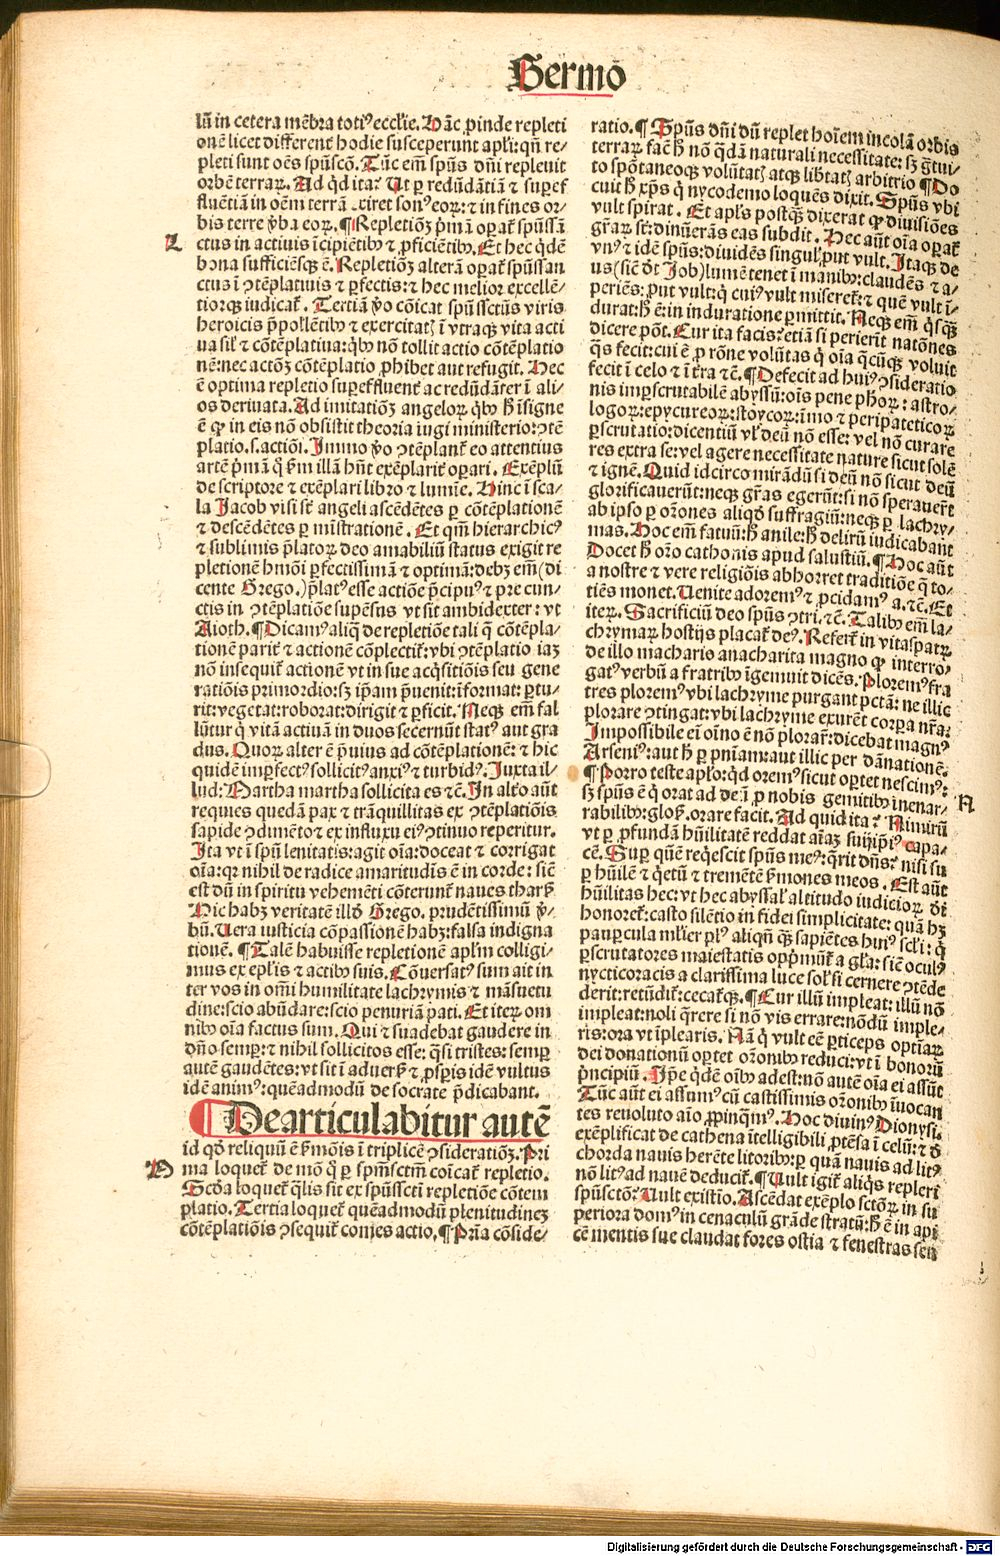 Sermo
lū in cetera mēbra toti⁹ ecclīe. Hāc ꝓinde repleti
onē licet different̄ hodie susceperunt apl̄i: qn̄ re-
pleti sunt oēs spūscō. Tūc em̄ spūs dn̄i repleuit
orbē terraꝝ. Ad qd̄ ita? Ut ꝑ redūdātiā ⁊ suꝑef
fluētiā in oēm terrā exiret son⁹ eoꝝ: ⁊ in fines or-
bis terre ꝟba eoꝝ. ¶ Repletiōꝫ pͥmā oꝑat̄ spūssā
L
ctus in actiuis īcipiētibꝰ ⁊ ꝓficiētibꝰ. Et hec qͥdē
bona sufficiēsqꝫ ē. Repletiōꝫ alterā oꝑat̄ spūssan
ctus ī ꝯtēplatiuis ⁊ ꝑfectis: ⁊ hec melior excellē-
tiorqꝫ iudicat̄. Tertiā ꝟo cōicat spūssctūs viris
heroicis p̄pollētibꝰ ⁊ exercitatꝭ ī vtraqꝫ vita acti
ua sil̄ ⁊ cōtēplatiua: qͥbꝰ nō tollit actio cōtēplatio
nē: nec actōꝫ cōtēplatio ꝓhibet aut refugit. Hec
ē optima repletio suꝑeffluent̄ ac redūdāter ī ali-
os deriuata. Ad imitatiōꝫ angeloꝝ qͥbꝰ hͦ īsigne
ē ꝙ in eis nō obsistit theoria iugi ministerio: ꝯtē
platio .s. actiōi. Immo ꝟo ꝯtēplant̄ eo attentius
artē pͥmā qͦ ẜm illā hn̄t exēplarit̄ oꝑari. Exēplū
de scriptore ⁊ exēplari libro ⁊ lumīe. Hinc ī sca-
la Jacob visi sūt angeli ascēdētes ꝑ cōtēplationē
⁊ descēdētes ꝑ mīstrationē. Et qm̄ hierarchic⁹
⁊ sublimis p̄latoꝝ deo amabiliū status exigit re
pletionē hmōi ꝑfectissimā ⁊ optimā: debꝫ em̄ (di
cente Grego.) p̄lat⁹ esse actiōe p̄cipu⁹ ⁊ pre cun-
ctis in ꝯtēplatiōe supēsus vt sit ambidexter: vt
Aioth. ¶ Dicam⁹ aliqͥ de repletiōe tali q̄ cōtēpla-
tionē parit̄ ⁊ actionē cōplectit̄: vbi ꝯtēplatio iaꝫ
nō insequit̄ actionē vt in sue acqͥsitiōis seu gene
ratiōis primordio: sꝫ ip̄am p̄uenit: īformat: ꝑtu-
rit: vegetat: roborat: dirigit ⁊ ꝑficit. Neqꝫ em̄ fal
lūtur qͥ vitā actiuā in duos secernūt stat⁹ aut gra
dus. Quoꝝ alter ē p̄uius ad cōtēplationē: ⁊ hic
quidē imꝑfect⁹ sollicit⁹ anxi⁹ ⁊ turbid⁹. Juxta il-
lud: Martha martha sollicita es ⁊c̄. In alt̄o aūt
requies quedā pax ⁊ trāquillitas ex ꝯtēplatiōis
sapide ꝯdimēto ⁊ ex influxu ei⁹ ꝯtinuo reperitur.
Ita vt ī spū lenitatis: agit oīa: doceat ⁊ corrigat
oīa: qꝛ nihil de radice amaritudis ē in corde: siē
est dū in spiritu vehemēti cōterunt̄ naues tharẜ.
Hic habꝫ veritatē illd̄ Grego. prudētissimū ꝟ-
bū. Uera iusticia cōpassionē habꝫ: falsa indigna
tionē. ¶ Talē habuisse repletionē apl̄m colligi-
mus ex epl̄is ⁊ actibꝰ suis. Cōuersat⁹ sum ait in
ter vos in om̄i humilitate lachrymis ⁊ māsuetu
dine: scio abūdare: scio penuriā pati. Et iteꝝ om
nibꝰ oīa factus sum. Qui ⁊ suadebat gaudere in
dn̄o semꝑ: ⁊ nihil sollicitos esse: qͣsi tristes: semꝑ
autē gaudētes: vt sit ī aduerẜ ⁊ ꝓsꝑis idē vultus
idē anim⁹: quēadmodū de socrate p̄dicabant.
¶ Dearticulabitur autē
id qd̄ reliquū ē ẜmōis ī triplicē ꝯsideratiōꝫ. Pri
M
ma loquet̄ de mō qͦ ꝑ spm̄sctm̄ coīcat̄ repletio.
Scd̄a loquet̄ qͣlis sit ex spūsscti repletiōe cōtem
platio. Tertia loquet̄ quēadmodū plenitudinez
cōtēplatiōis ꝯsequit̄ comes actio. ¶ Prīa cōside-
ratio. ¶ Spūs dn̄i dū replet hoīem incolā orbis
terraꝝ facē hͦ nō qͣdā naturali necessitate: sꝫ gͣtui-
to spōtaneoqꝫ volūtatꝭ atqꝫ libtatꝭ arbitrio ¶ Do
cuit hͦ xp̄s qͥ nycodemo loquēs dixit. Spūs vbi
vult spirat. Et apl̄s postqͣꝫ dixerat ꝙ diuisiōes
gr̄aꝝ sūt: dinūerās eas subdit. Hec aūt oīa oꝑat̄
vn⁹ ⁊ idē spūs: diuidēs singul̄ put vult. Itaqꝫ de
us (siē dr̄ Job) lumē tenet ī manibꝰ: claudēs ⁊ a-
periēs: put vult: qͥ cui⁹ vult miseret̄: ⁊ quē vult ī-
durat: hͦ ē: in induratione ꝑmittit. Neqꝫ em̄ qͥsqͣꝫ
dicere pōt. Cur ita facis? etiā si perierīt natōnes
qͣs fecit: cui ē ꝓ rōne volūtas qͥ oīa qͣcūqꝫ voluit
fecit ī celo ⁊ ī tr̄a ⁊c̄. ¶ Defecit ad hui⁹ ꝯsideratio
nis imꝑscrutabilē abyssū: oīs pene ph̄oꝝ: astro-
logoꝝ: epycureoꝝ: stoycoꝝ: īmo ⁊ peripateticoꝝ
ꝑscrutatio: dicentiū vl̄ deū nō esse: vel nō curare
res extra se: vel agere necessitate nature sicut solē
⁊ ignē. Quid idcirco mirādū si deū nō sicut deū
glorificauerūt: neqꝫ gr̄as egerūt: si nō sperauer̄t
ab ipso ꝑ oōnes aliqd̄ suffragiū: neqꝫ ꝑ lachry-
mas. Hoc em̄ fatuū: hͦ anile: hͦ delirū iudicabant
Docet hͦ or̄o cathonis apud salustiū. ¶ Hoc aūt
a nostre ⁊ vere religiōis abhorret traditiōe q̄ to-
tiēs monet. Uenite adorem⁹ ⁊ ꝓcidam⁹ a. ⁊c̄. Et
iteꝝ. Sacrificiū deo spūs ꝯtri. ⁊c̄. Talibꝰ em̄ la-
chrymaꝝ hostijs placat̄ de⁹. Refert̄ in vitaspatꝝ
de illo macharis anacharita magno ꝙ interro-
gat⁹ verbū a fratribꝰ īgemuit dicēs. Plorem⁹ fra
tres plorem⁹ vbi lachryme purgant pctā: ne illic
plorare ꝯtingat: vbi lachryme exurēt corꝑa nr̄a.
Impossibile ei oīno ē nō plorar̄: dicebat magn⁹
Arseni⁹: aut hͦ ꝑ pn̄iam: aut illic per dānationē.
¶ Porro teste apl̄o: qd̄ orem⁹ sicut oꝑtet nescim⁹:
N
sꝫ spūs ē qͥ orat ad deū ꝓ nobis gemitibꝰ inenar-
rabilibꝰ: gloẜ. orare facit. Ad quid ita? Nimirū
vt ꝓ ꝓfundā hūilitatē reddat aīaꝫ suiip̄i⁹ capa-
cē. Suꝑ quē reqͥescit spūs me⁹: qͥrit dn̄s: nisi su
ꝑ hūilē ⁊ qͥetū ⁊ tremētē ẜmones meos. Est aūt
hūilitas hec: vt hec abyssal̄ altitudo iudicioꝝ d̄i
honoret̄: casto silētio in fidei simplicitate: quā hꝫ
pauꝑcula ml̄ier pl⁹ aliqn̄ qͣꝫ sapiētes hui⁹ sel̄i: qͥ
ꝑscrutatores maiestatis opp̄mūt̄ a gl̄a: siē ocul⁹
nycticoracis a clarissima luce sol̄ si cernere ꝯtēde
derit: retūdit̄: cecat̄qꝫ. ¶ Cur illū impleat: illū nō
impleat: noli qͥrere si nō vis errare: nōdū imple-
ris: ora vt īplearis. Nā qͥ vult eē ꝑticeps optīaꝝ
dei donationū oꝑtet oōnibꝰ reduci: vt ī bonoꝝ
pͥncipiū. Ip̄e qͥdē oībꝰ adest: nō autē oīa ei assūt
Tūc aūt ei assum⁹ cū castissimis oōnibꝰ īuocan
tes reuoluto aīo ꝓpinqͣm⁹. Hoc diuin⁹ Dionysi⁹
exēplificat de cathena ītelligibili ꝓtēsa ī celū: ⁊ d̄
chorda nauis herēte litoribꝰ: ꝑ quā nauis ad lit⁹
nō lit⁹ ad nauē deducit̄. ¶ Uult igit̄ aliqͥs repleri
spūsctō? Uult existio. Ascēdat exēplo sctōꝝ in su
periora dom⁹ in cenaculū grāde stratū: hͦ ē in api
cē mentis sue claudat fores ostia ⁊ fenestras seu
Digitalisierung gefördert durch die Deutsche Forschungsgemeinschaft - DFG